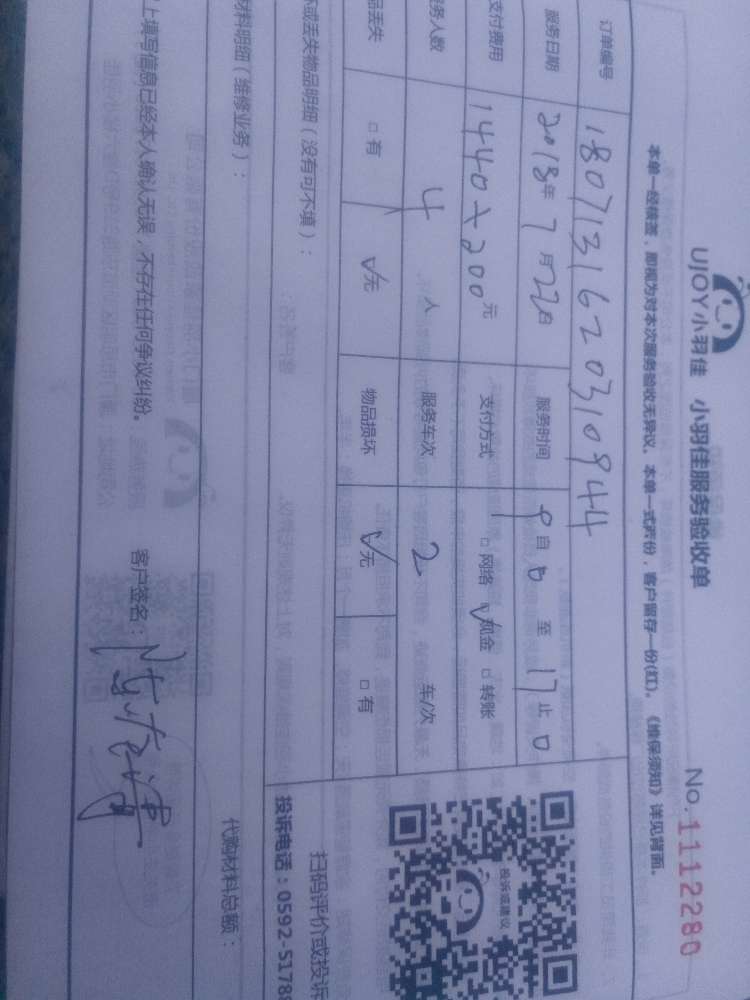 UJOY小羽佳 小羽佳服务验收单 No.1112280
本单一经核签，即视为对本次服务验收无异议。本单一式两份，客户留存一份(红)。《维保须知》详见背面。
订单编号 1807131620310944
服务日期 2018年7月22日 服务时间 9自0至17止0
支付费用 1440+200元 支付方式 □网络 ☑现金 □转账
务人数 4人 服务车次 2 车/次
品丢失 □有 ☑无 物品损坏 ☑无 □有
坏或丢失物品明细（没有可不填）：
材料明细（维修业务）：
代购材料总额：
上填写信息已经本人确认无误，不存在任何争议纠纷。 客户签名：
投诉或建议
扫码评价或投诉
投诉电话：0592-5178